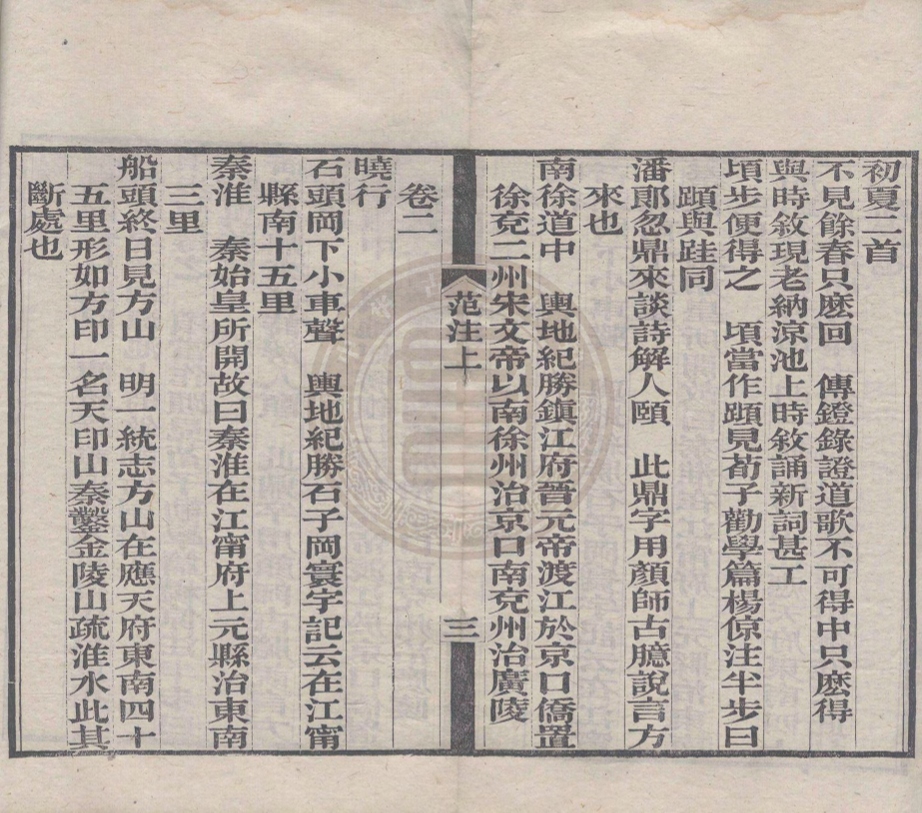 初夏二首
不見餘春只麽回　傳鐙錄證道歌不可得中只麽得
與時敘現老納涼池上時敘誦新詞甚工
頃步便得之　頃當作蹞見荀子勸學篇楊倞注半步曰
蹞與跬同
潘郎忽鼎來談詩解人頤　此鼎字用顏師古臆說言方
來也
南徐道中　輿地紀勝鎮江府晉元帝渡江於京口僑置
徐兗二州宋文帝以南徐州治京口南兗州治廣陵
范注上
三
卷二
曉行
石頭岡下小車聲　輿地紀勝石子岡寰宇記云在江甯
縣南十五里
秦淮　秦始皇所開故曰秦淮在江甯府上元縣治東南
三里
船頭終日見方山　明一統志方山在應天府東南四十
五里形如方印一名天印山秦鑿金陵山疏淮水此其
斷處也